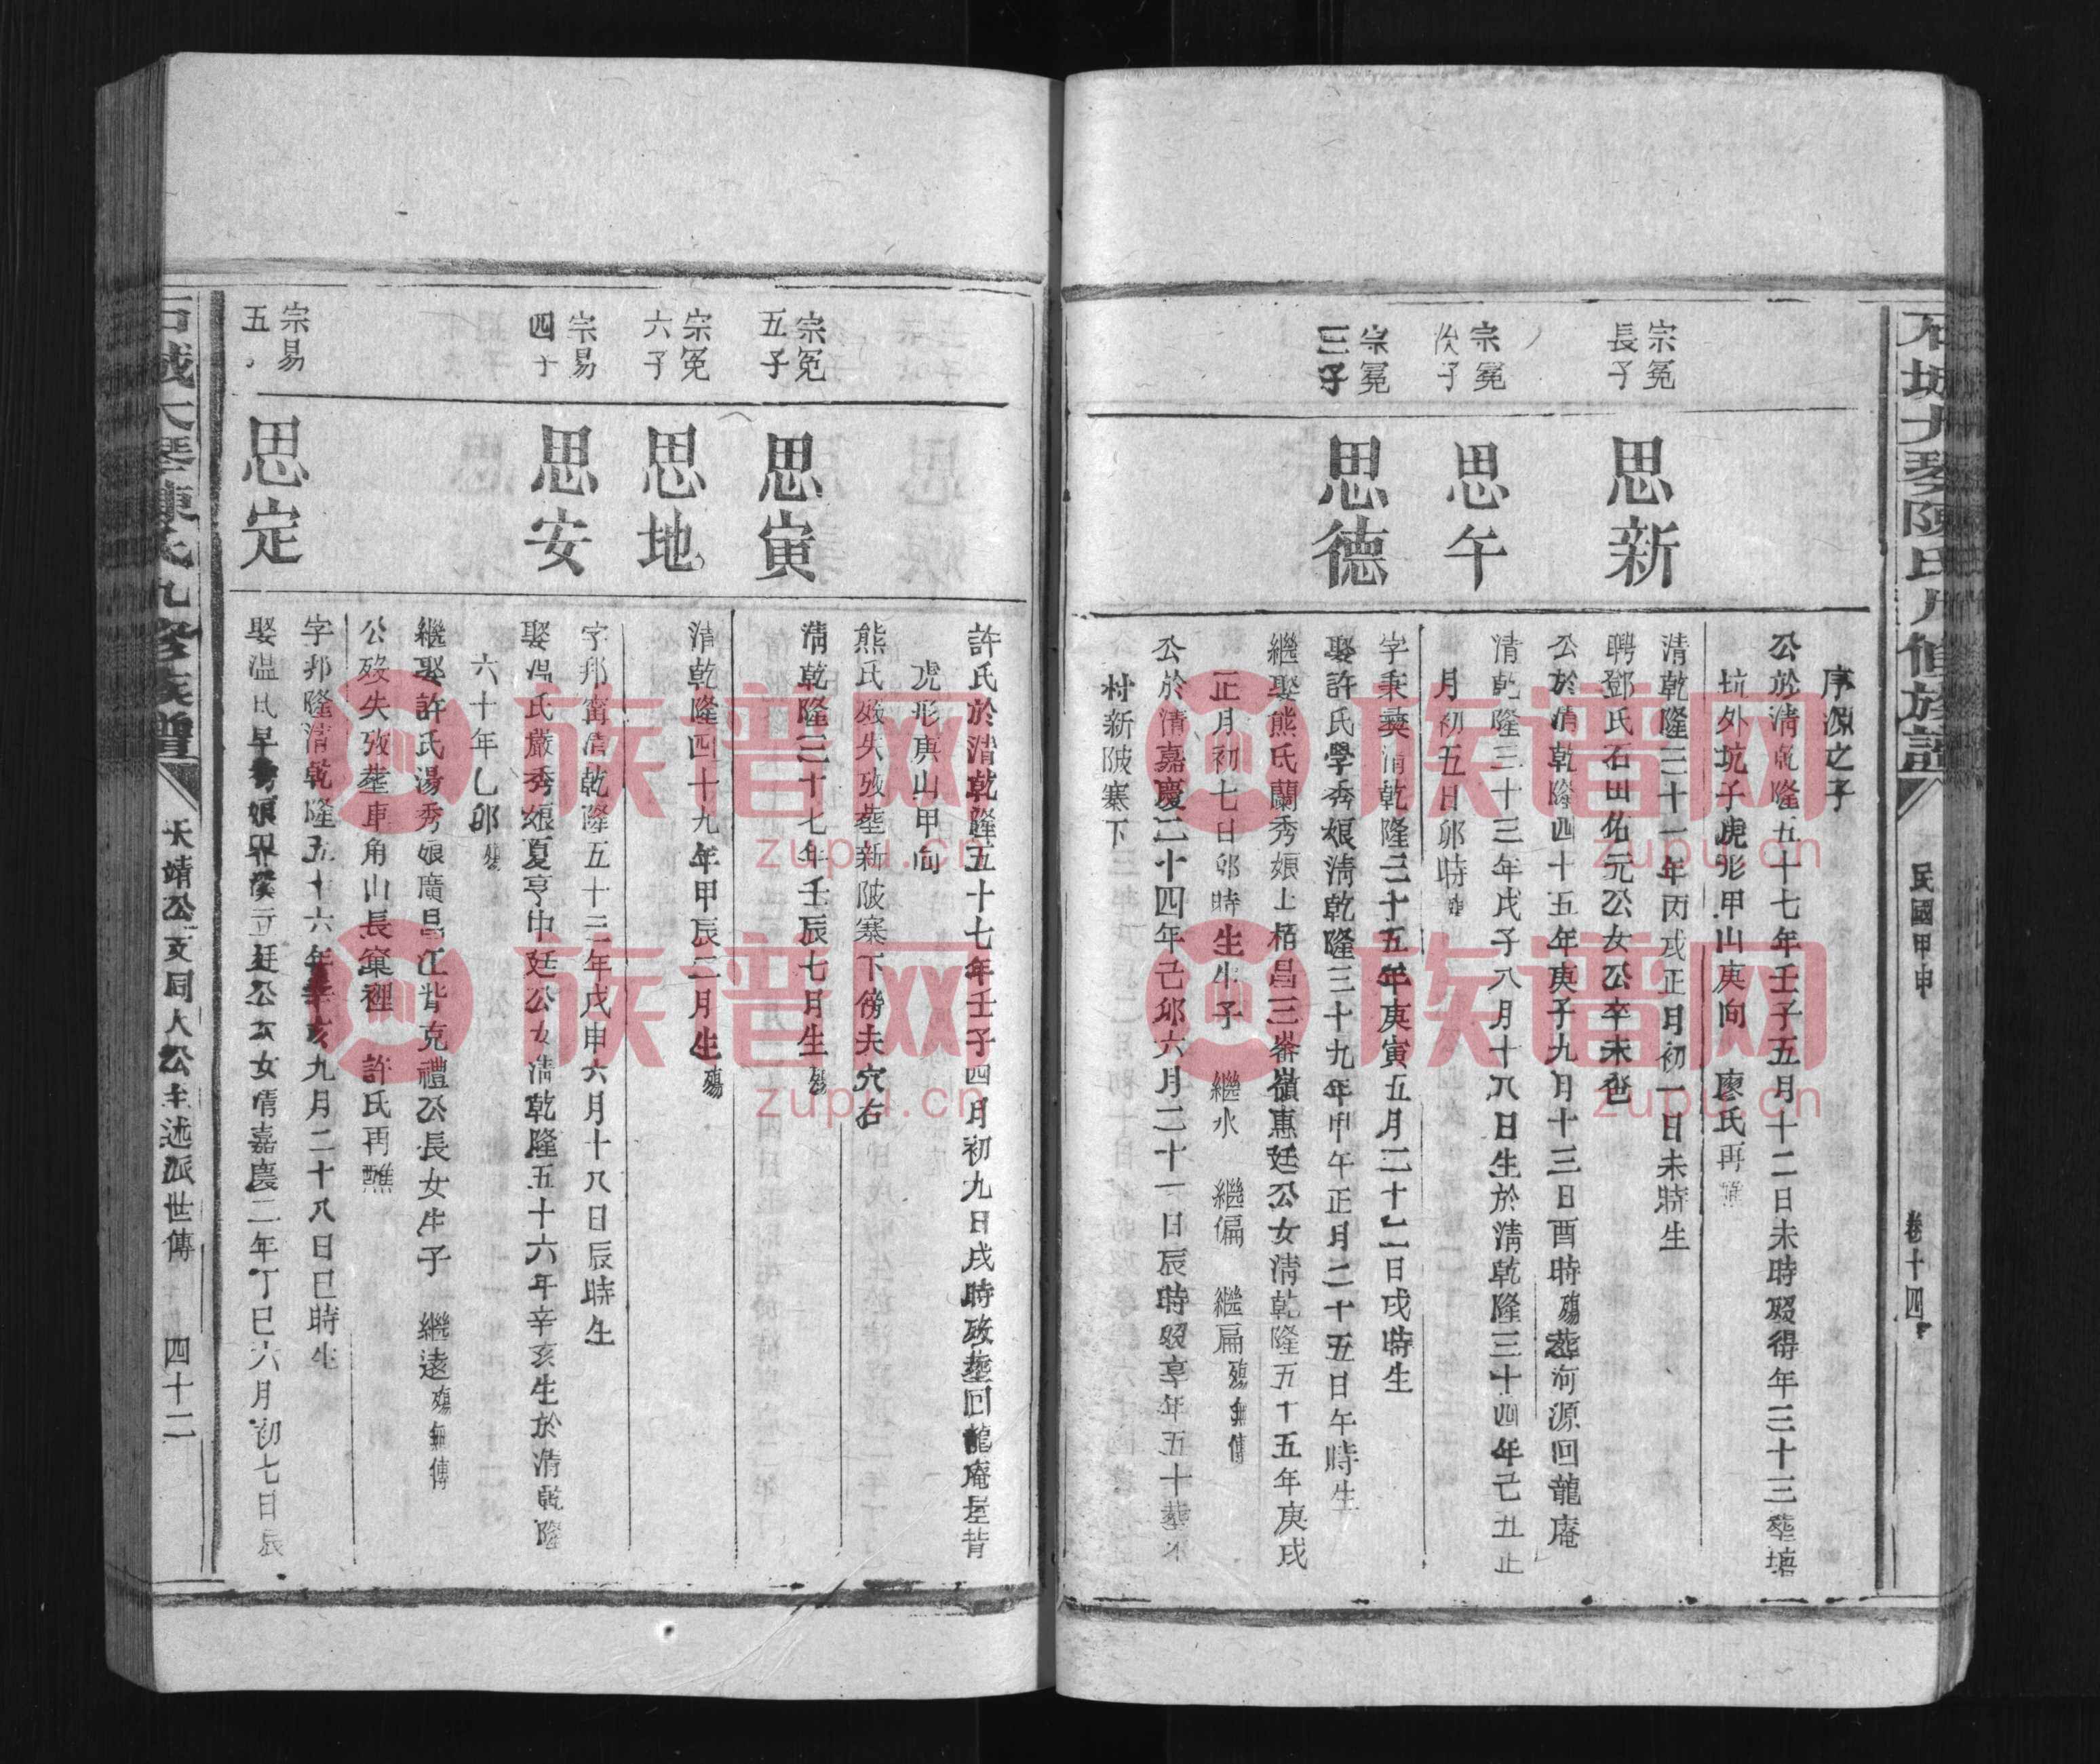 石城大琴陳氏九修族譜
民國甲申
卷十四
序源之子
公於清乾隆五十七年壬子五月十二日未時歿得年三十三塟塘
坑外坑子虎形甲山庚向 廖氏再醮
宗冕長子
思新
清乾隆三十一年丙戌正月初一日未時生
聘鄧氏石田佑元公女公卒未壱
公於清乾隆四十五年庚子九月十三日酉時殤塟河源回龍庵
宗冕次子
思午
清乾隆三十三年戌子八月十八日生於清乾隆三十四年己丑正
月初五日卯時殤
宗冕三子
思德
字秉彝清乾隆三十五年庚寅五月二十二日戌時生
娶許氏學秀娘清乾隆三十九年甲午正月二十五日午時生
繼娶熊氏蘭秀娘上栢昌三崙嶺惠廷公女清乾隆五十五年庚戌
正月初七日卯時生生子 繼水 繼偏 繼扁殤無傳
公於清嘉慶二十四年己卯六月二十一日辰時歿享年五十塟木
村新陂寨下
許氏於清乾隆五十七年壬子四月初九日戌時歿塟回龍庵屋背
虎形庚山甲向
熊氏歿失攷塟新陂寨下傍夫穴右
宗冕五子
思寅
清乾隆三十七年壬辰七月生殤
宗冕六子
思地
清乾隆四十九年甲辰二月生殤
宗易四子
思安
字邦甯清乾隆五十三年戊申六月十八日辰時生
娶温氏嚴秀娘夏亨中廷公女清乾隆五十六年辛亥生於清乾隆
六十年乙卯殤
繼娶許氏湯秀娘廣昌江背克禮公長女生子 繼遠殤無傳
公歿失攷塟車角山長窠裡 許氏再醮
宗易五
思定
字邦隆清乾隆五十六年辛亥九月二十八日巳時生
娶温氏早秀娘公女清嘉慶二年丁巳六月初七日辰
石城大琴陳氏九修族譜
天靖公支同人公主述派世傳
四十二
族谱网
zupu.cn
族谱网
zupu.cn
族谱网
zupu.cn
族谱网
zupu.cn